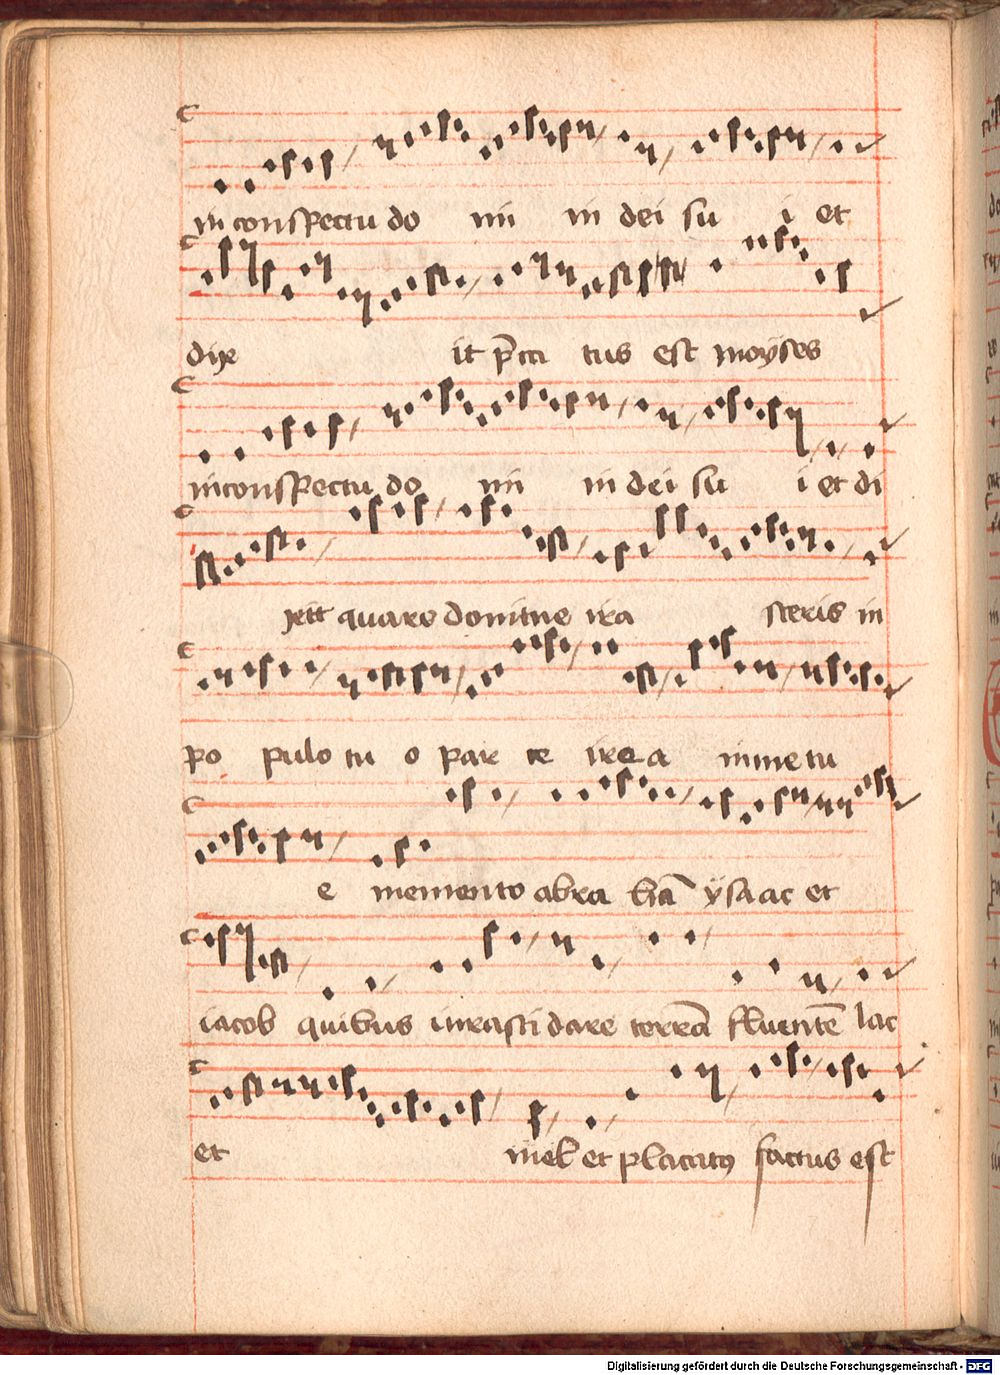 in conspectu do mi in dei su i et
dixe it p̄ca tus est moyses
in conspectu do mi in dei su i et di
xitt quare domine ira sceris in
po pulo tu o par ce ire a nime tu
e memento abra hā ysaac et
iacob quibus iurasti dare terrā fluentē lac
et mel et placatꝯ factus est
Digitalisierung gefördert durch die Deutsche Forschungsgemeinschaft - DFG